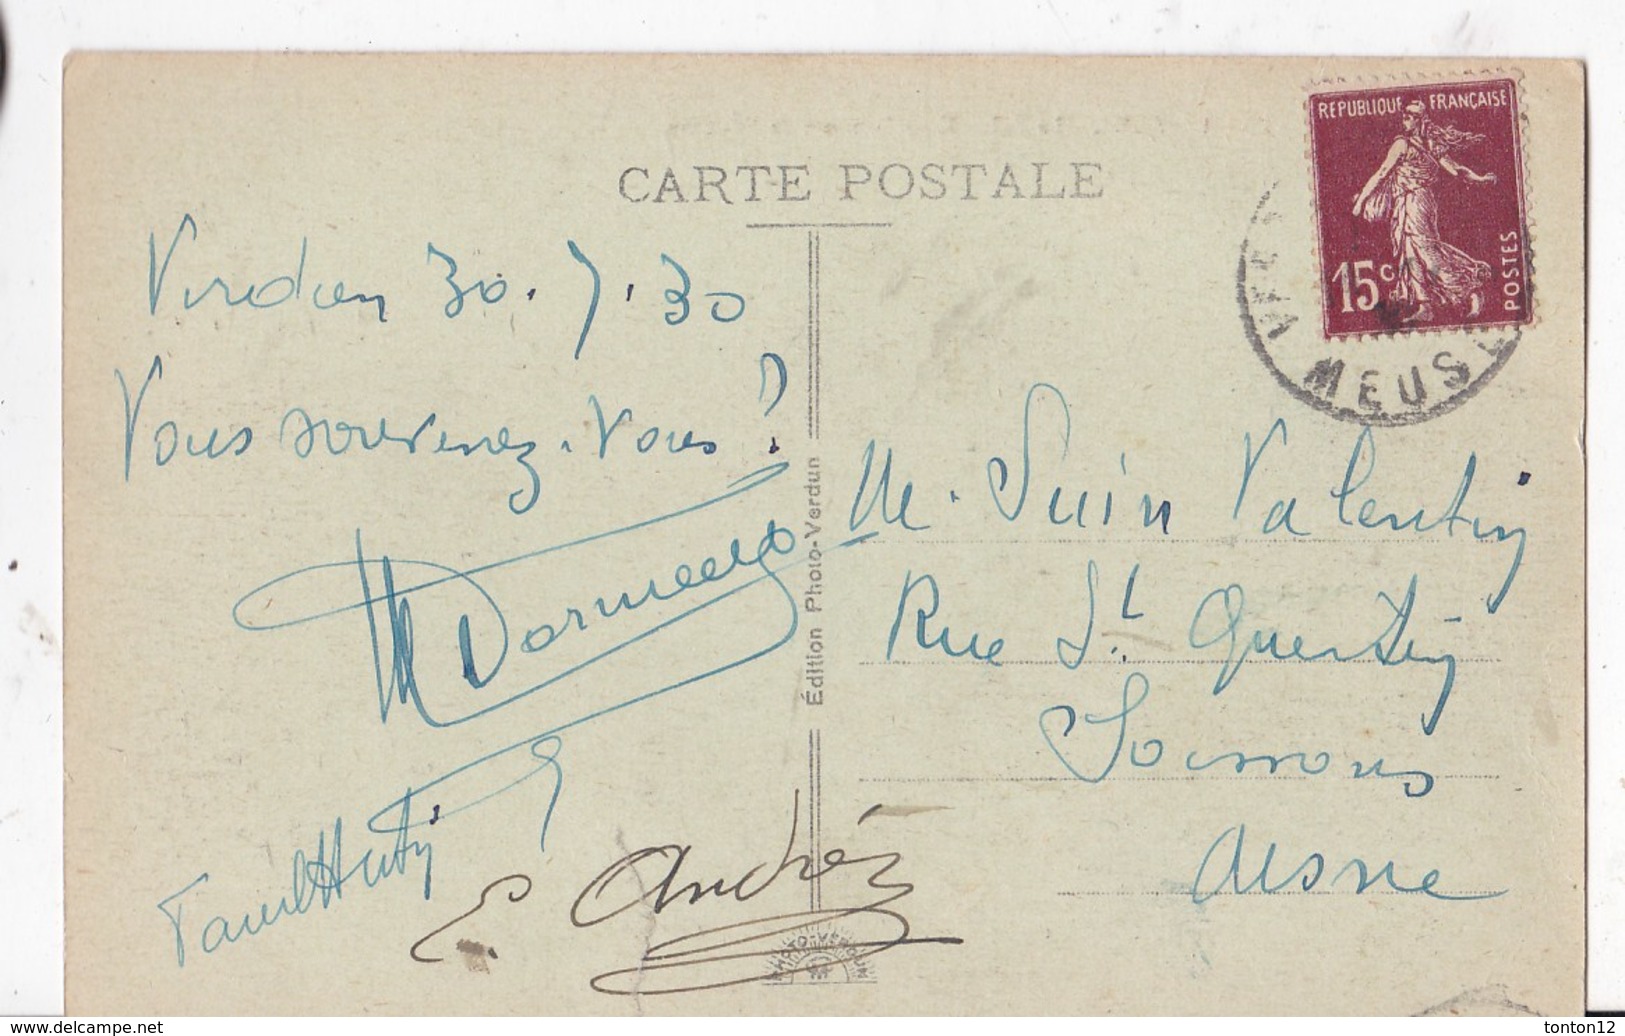 CARTE POSTALE
REPUBLIQUE FRANÇAISE
15c
POSTES
MEUSE
Verdun 30.7.30
Vous souvenez-vous?
M. Suin Valentin
Rue St. Quentin
Soissons
Aisne
E. André
Édition Photo-Verdun
PHOTO-VERDUN
www.delcampe.net
tonton12